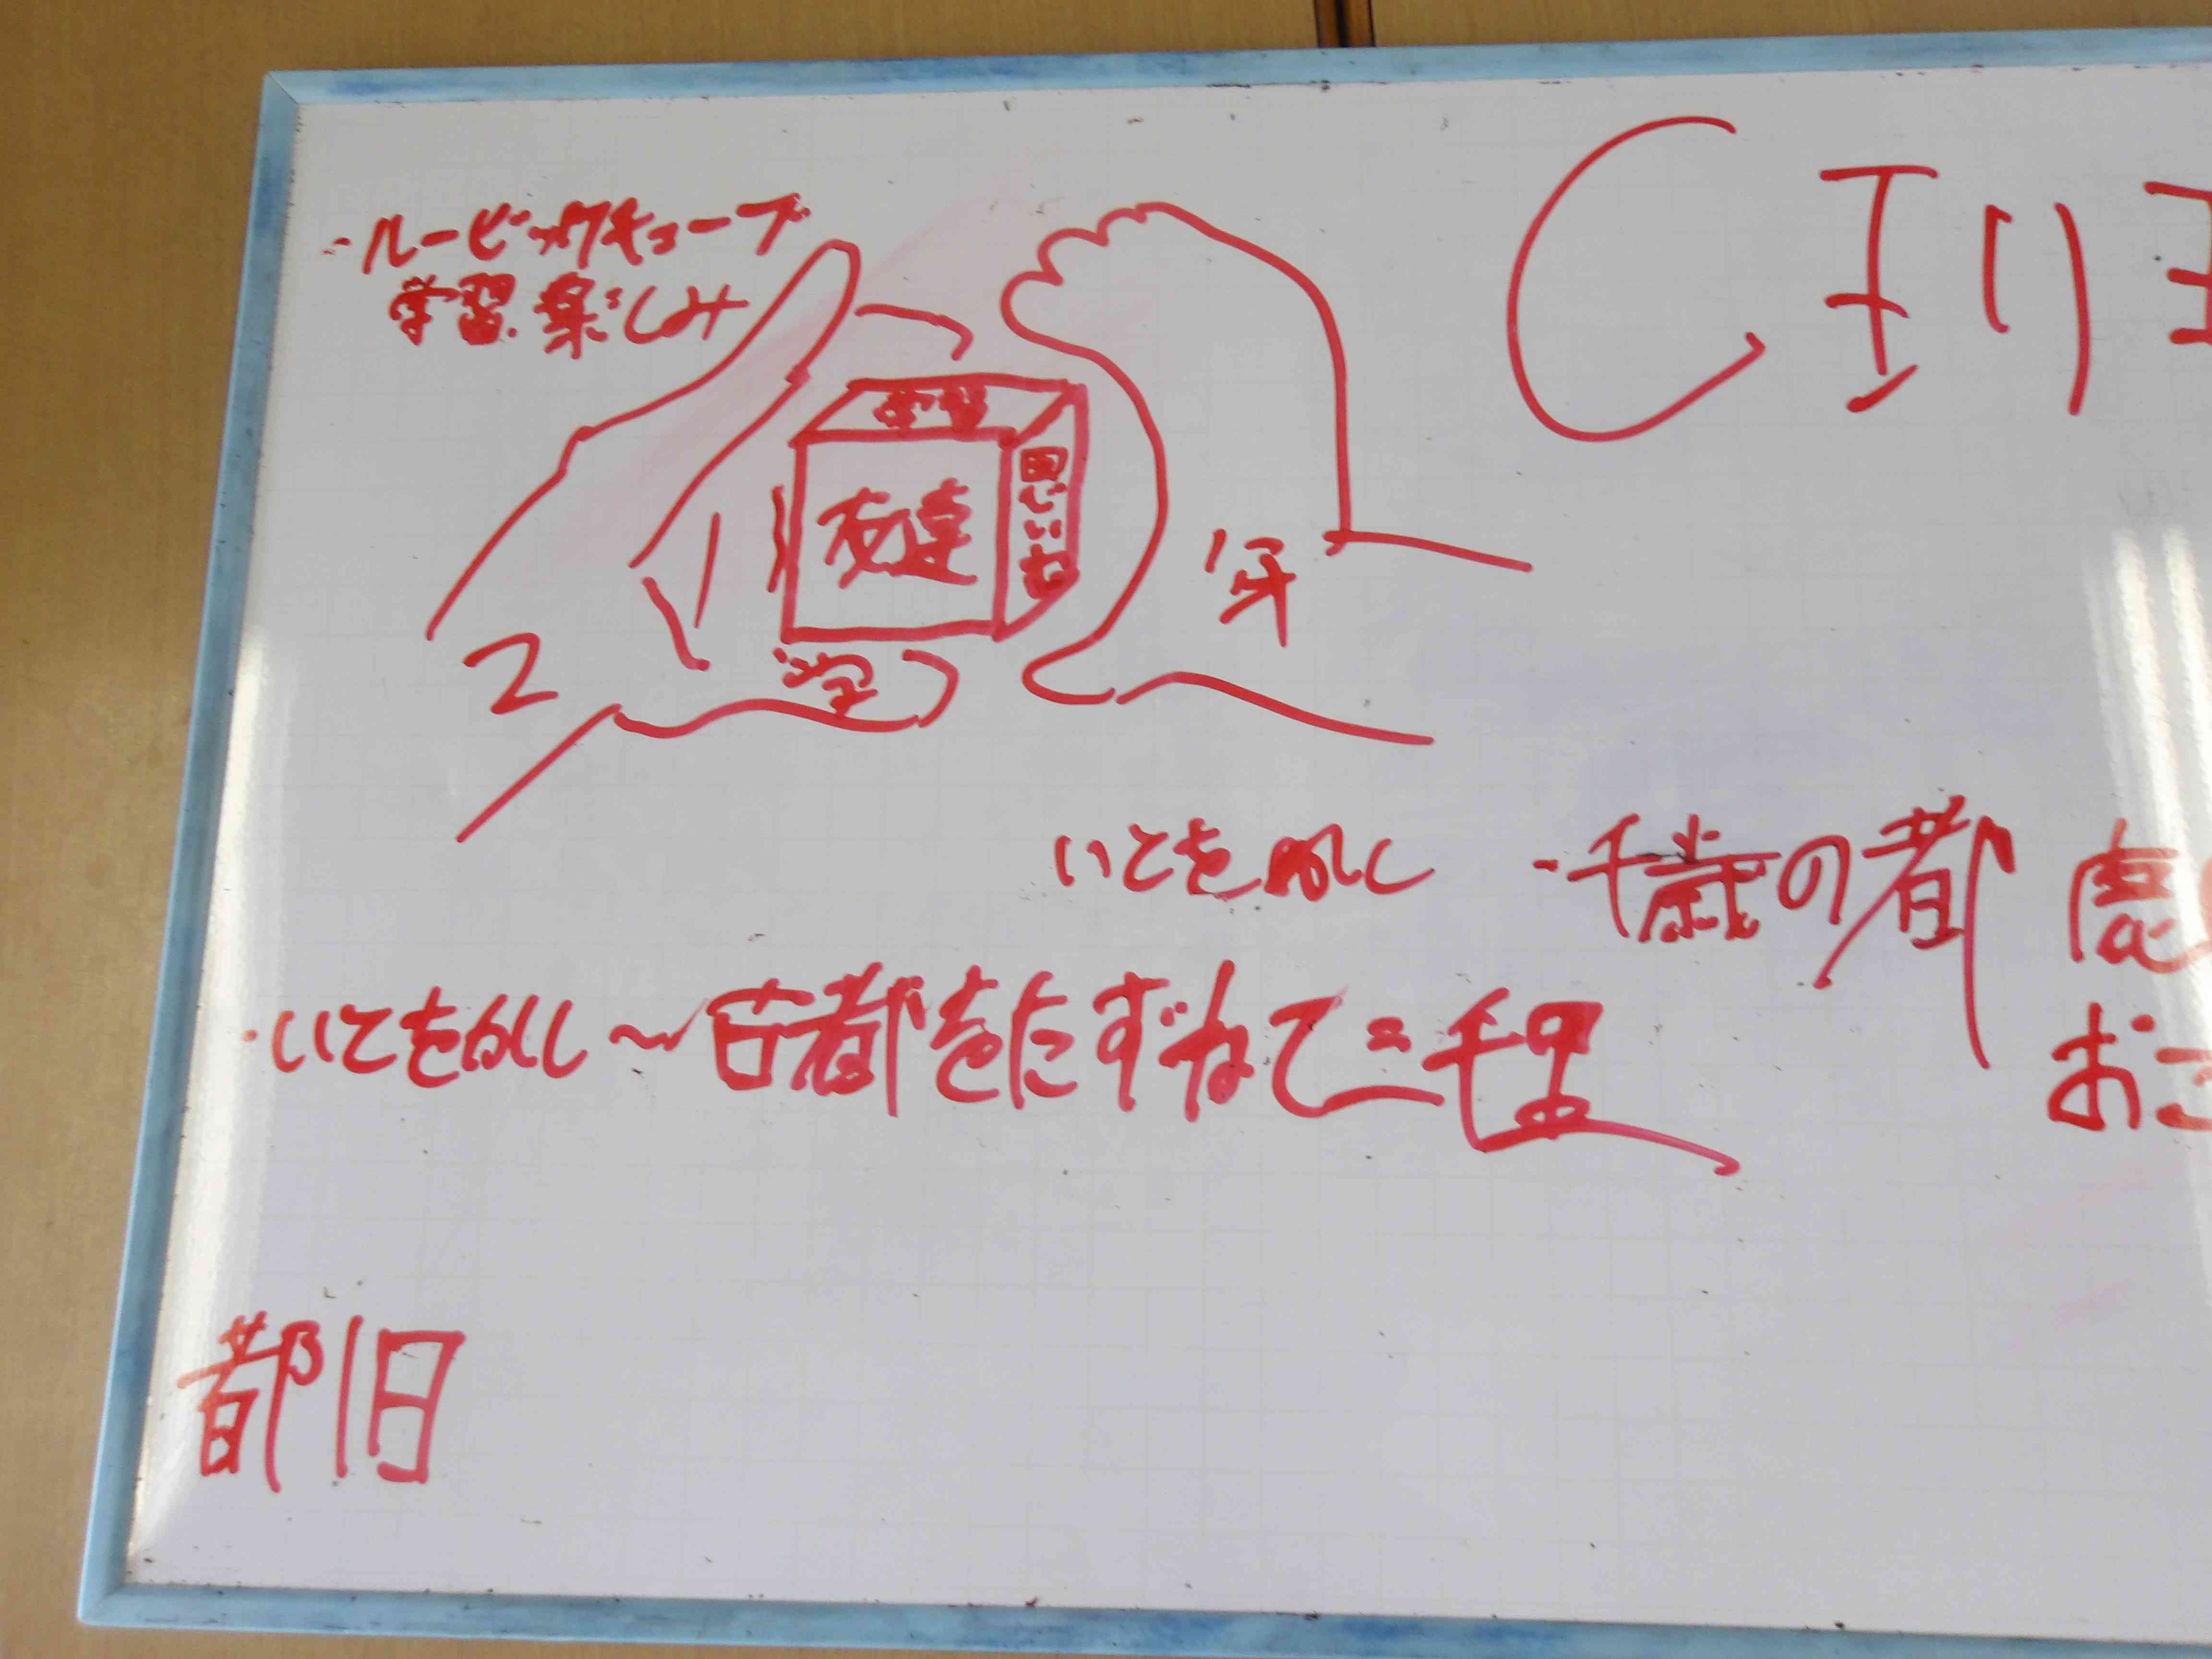 ・ルービックキューブ
学習、楽しみ
学習
友達
思いね
2
学
年
いとをかし
・千歳の都
・いとをかし〜古都をたずねて三千里
都旧